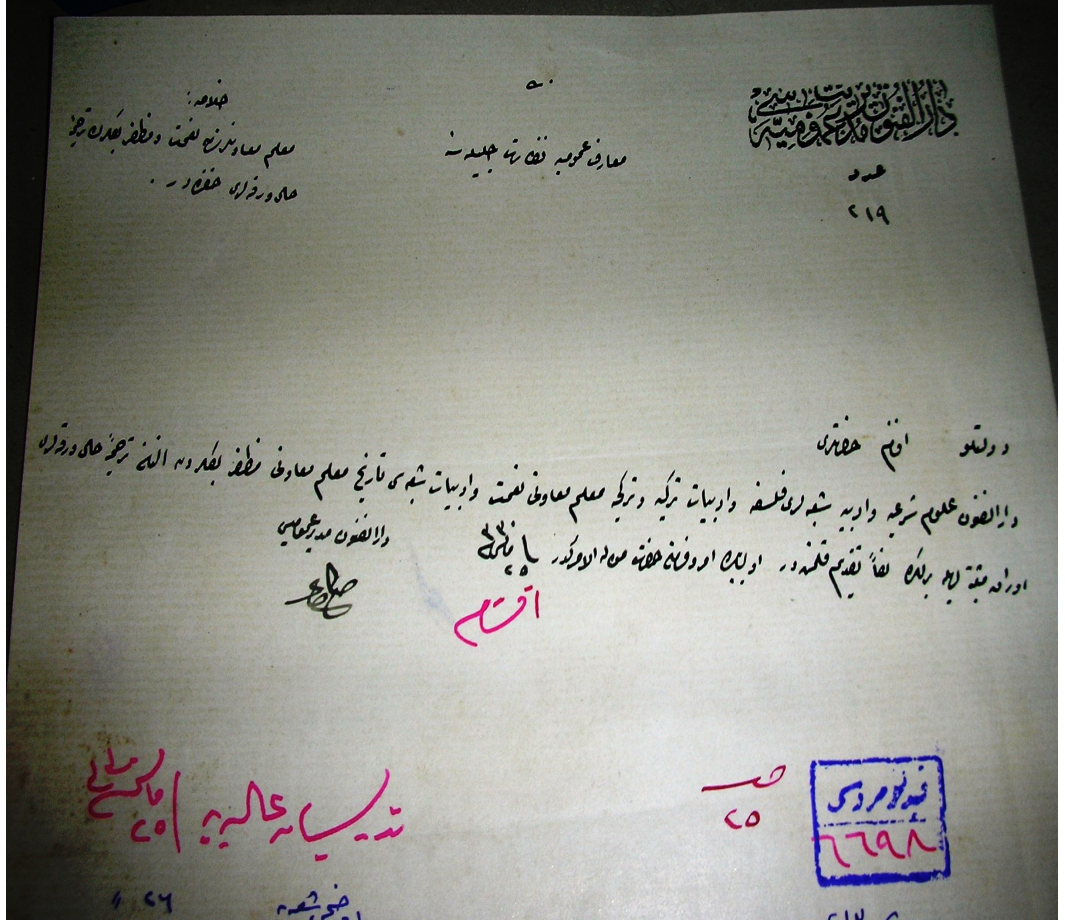 دار الفنون مديريت عموميه سى
عدد
٢١٩
معارف عموميه نظارت جليله سنه
خلاصه:
معلم معاونلرندن نعمت و مظفر بكلرك ترجمهٔ
حال ورقه لرى حقنده در .
دولتلو افندم حضرتلرى
دار الفنون علوم شرعيه وادبيه شعبه لرى فلسفه وادبيات تركيه وتركجه معلم معاونى نعمت وادبيات شعبه سى تاريخ معلم معاونى مظفر بكلردن آلنان ترجمهٔ حال ورقه لرى
اوراق مثبته ايله برلكده لفاً تقديم قلنمشدر اولبابده امر وفرمان حضرت من له الامركدر
٢٥ مارت ٣٣٣
دار الفنون مدير عموميسى
تدريسات عاليه يه
٢٥ مارت
٢٥
قيد نومروسى
٦٦٩٨
٢٦